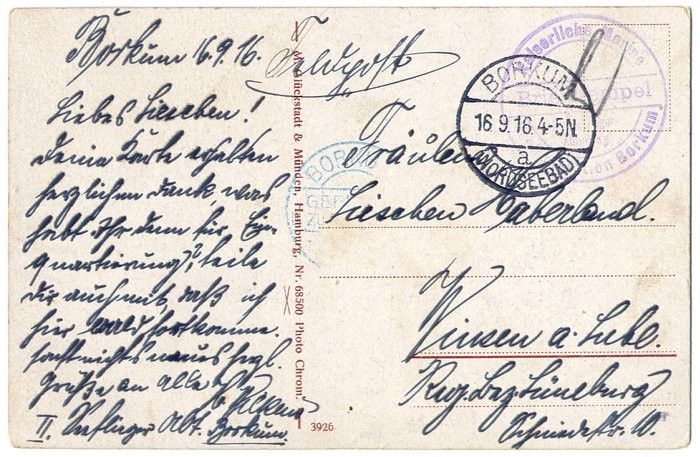 Borkum 16.9.16.
Feldpost
Liebes Lieschen!
Deine Karte erhalten
herzlichen Dank, was
habt Ihr denn für Ein-
quartierung?, teile
dir auch mit, daß ich
hier bald fortkomme.
sonst nichts neues herzl.
Grüße an alle
II. Abt. Borkum.
M. Glückstadt & Münden, Hamburg, Nr. 68500 Photo Chrom.
3926
BORKUM
16.9.16.4-5N.
a
(NORDSEEBAD)
Kaiserliche Marine
Borkum
BOR
GEPR
ZU
Fräulein
Lieschen Haberland.
Winsen a. Luhe.
Reg. Bez. Lüneburg
Schmiedestr. 10.